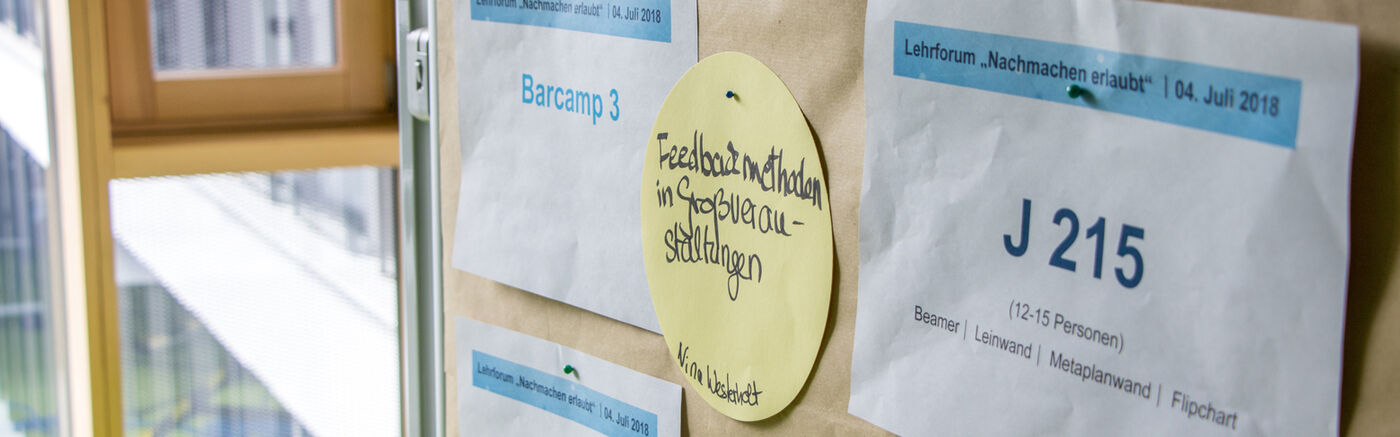 Lehrforum „Nachmachen erlaubt“ | 04. Juli 2018
Barcamp 3
Feedbackmethoden
in Großveran-
staltungen
Nina Westerholt
Lehrforum „Nachmachen erlaubt“ | 04. Juli 2018
J 215
(12-15 Personen)
Beamer | Leinwand | Metaplanwand | Flipchart
Lehrforum „Nachmachen erlaubt“ | 04. Juli 2018